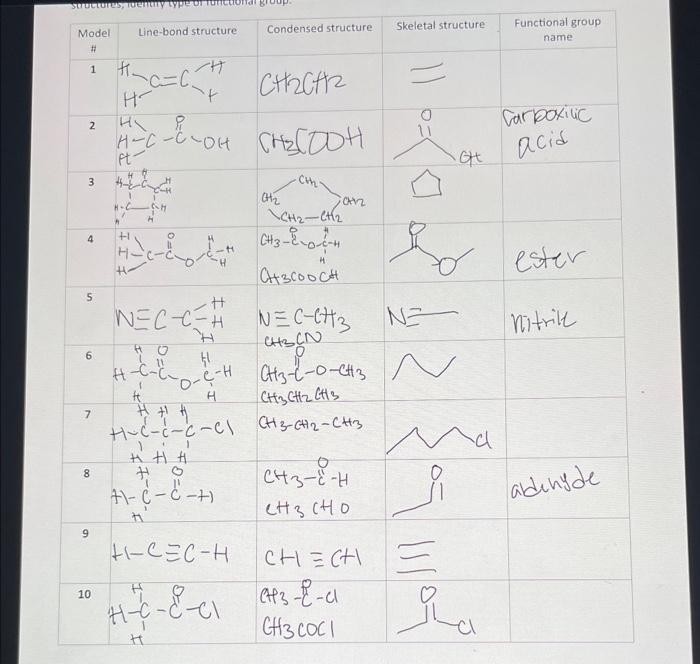 structures, identify type of functional group.
Model # Line-bond structure Condensed structure Skeletal structure Functional group name
1 H H C=C H H CH2CH2
2 H O H-C-C-OH H CH3COOH O OH Carboxilic acid
3 H H H H-C-C-C-H H-C-C-H H H CH2 CH2 CH2 CH2-CH2
4 H O H H-C-C-O-C-H H H CH3-C-O-C-H O H H O O ester
CH3COOCH
5 N≡C-C-H H H N≡C-CH3 N≡ nitrile
CH3CN
6 H O H H-C-C-O-C-H H H CH3-C-O-CH3 O
CH3CH2CH3
7 H H H H-C-C-C-Cl H H H CH3-CH2-CH3 Cl
8 H O H-C-C-H H CH3-C-H O O aldehyde
CH3CHO
9 H-C≡C-H CH≡CH
10 H O H-C-C-Cl H CH3-C-Cl O O Cl
CH3COCl